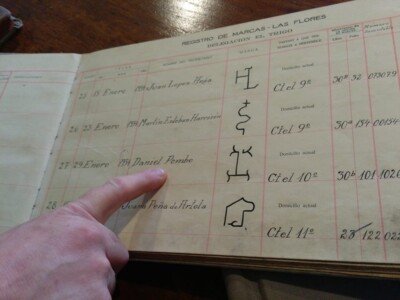 REGISTRO DE MARCAS - LAS FLORES
DELEGACIÓN EL TRIGO
MARCA
Domicilio actual
25 15 Enero 1934 Juan Lopez HL Ctel 9º 30ª 52 073079
Domicilio actual
26 23 Enero 1934 Martin Esteban Ctel 9º 30ª 154 00154
Domicilio actual
27 29 Enero 1934 Daniel Pombo Ctel 10º 30ª 101 1020
Domicilio actual
28 Juana Peña de Artola Ctel 11º 23 122 022